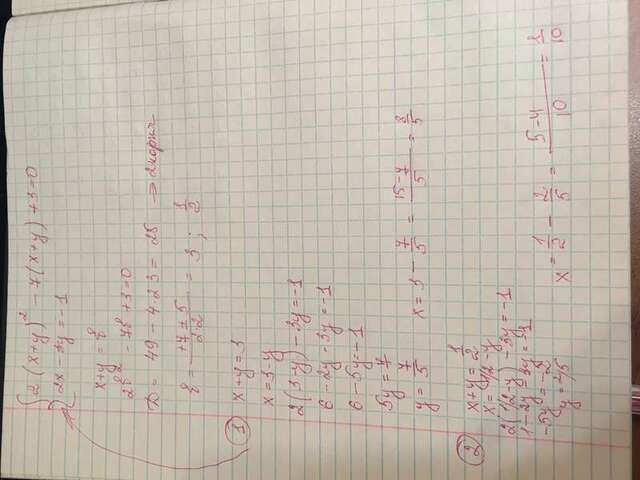 2(x+y)² - 7(x+y) + 3 = 0
2x - 3y = -1
x+y = t
2t² - 7t + 3 = 0
D = 49 - 4·2·3 = 25 → 2 корня
t = +7±5 / 2·2 = 3 ; 1/2
1 x+y=3
x=3-y
2(3-y) - 3y = -1
6 - 2y - 3y = -1
6 - 5y = -1
5y = 7
y = 7/5 x = 3 - 7/5 = 15-7/5 = 8/5
2 x+y = 1/2
x = 1/2 - y
2(1/2-y) - 3y = -1
1 - 2y - 3y = -1
-5y = -2
y = 2/5 x = 1/2 - 2/5 = 5-4/10 = 1/10